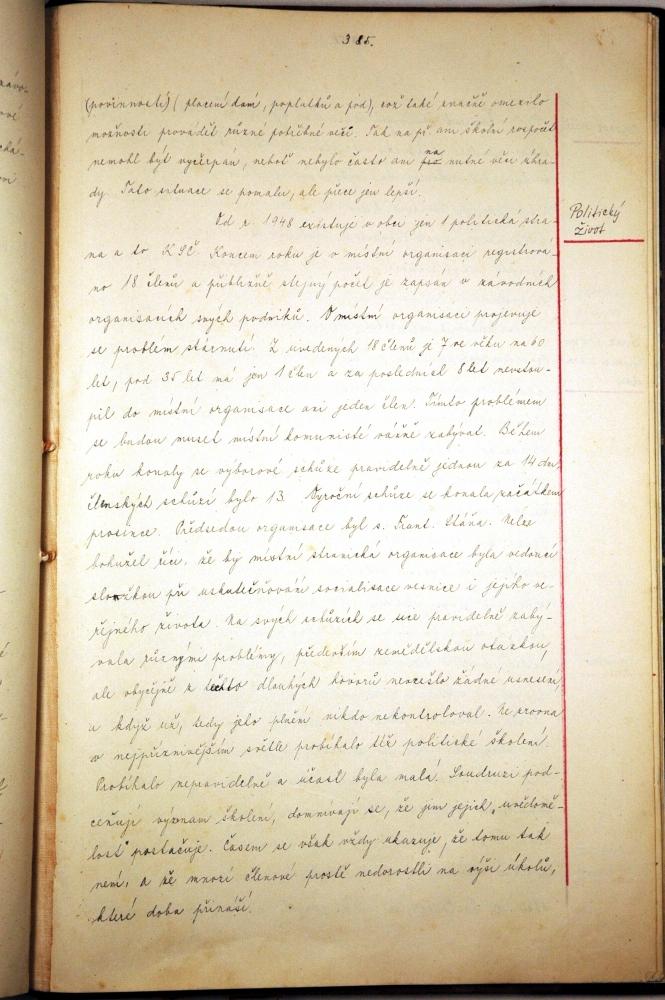 385.
(povinností) (placení daní, poplatků a pod), což také značně omezilo
možnosti provádět různé potřebné věci. Tak na př. ani školní rozpočet
nemohl být vyčerpán, neboť nebylo často ani na nutné věci úhra-
dy. Tato situace se pomalu, ale přece jen lepší.
Od r. 1948 existuje v obci jen 1 politická stra-
na a to KSČ. Koncem roku je v místní organisaci registrová-
no 18 členů a přibližně stejný počet je zapsán v závodních
organisacích svých podniků. V místní organisaci projevuje
se problém stárnutí. Z uvedených 18 členů je 7 ve věku na 60
let, pod 35 let má jen 1 člen a za posledních 8 let nevstou-
pil do místní organisace ani jeden člen. Tímto problémem
se budou muset místní komunisté vážně zabývat. Během
roku konaly se výborové schůze pravidelně jednou za 14 dní,
členských schůzí bylo 13. Výroční schůze se konala začátkem
prosince. Předsedou organisace byl s. Frant. Nelze
bohužel říci, že by místní stranická organisace byla vedoucí
složkou při uskutečňování socialisace vesnice i jejího ve-
řejného života. Na svých schůzích se sice pravidelně zabý-
vala různými problémy, především zemědělskou otázkou,
ale obyčejně z těchto dlouhých hovorů nevzešlo žádné usnesení,
a když už, tedy jeho plnění nikdo nekontroloval. Ne zrovna
v nejpříznivějším světle probíhalo též politické školení.
Probíhalo nepravidelně a účast byla malá. Soudruzi pod-
ceňují význam školení, domnívají se, že jim jejich „uvědomě-
lost" postačuje. Časem se však vždy ukazuje, že tomu tak
není, a že mnozí členové prostě nedorostli na výši úkolů,
které doba přináší.
Politický
život